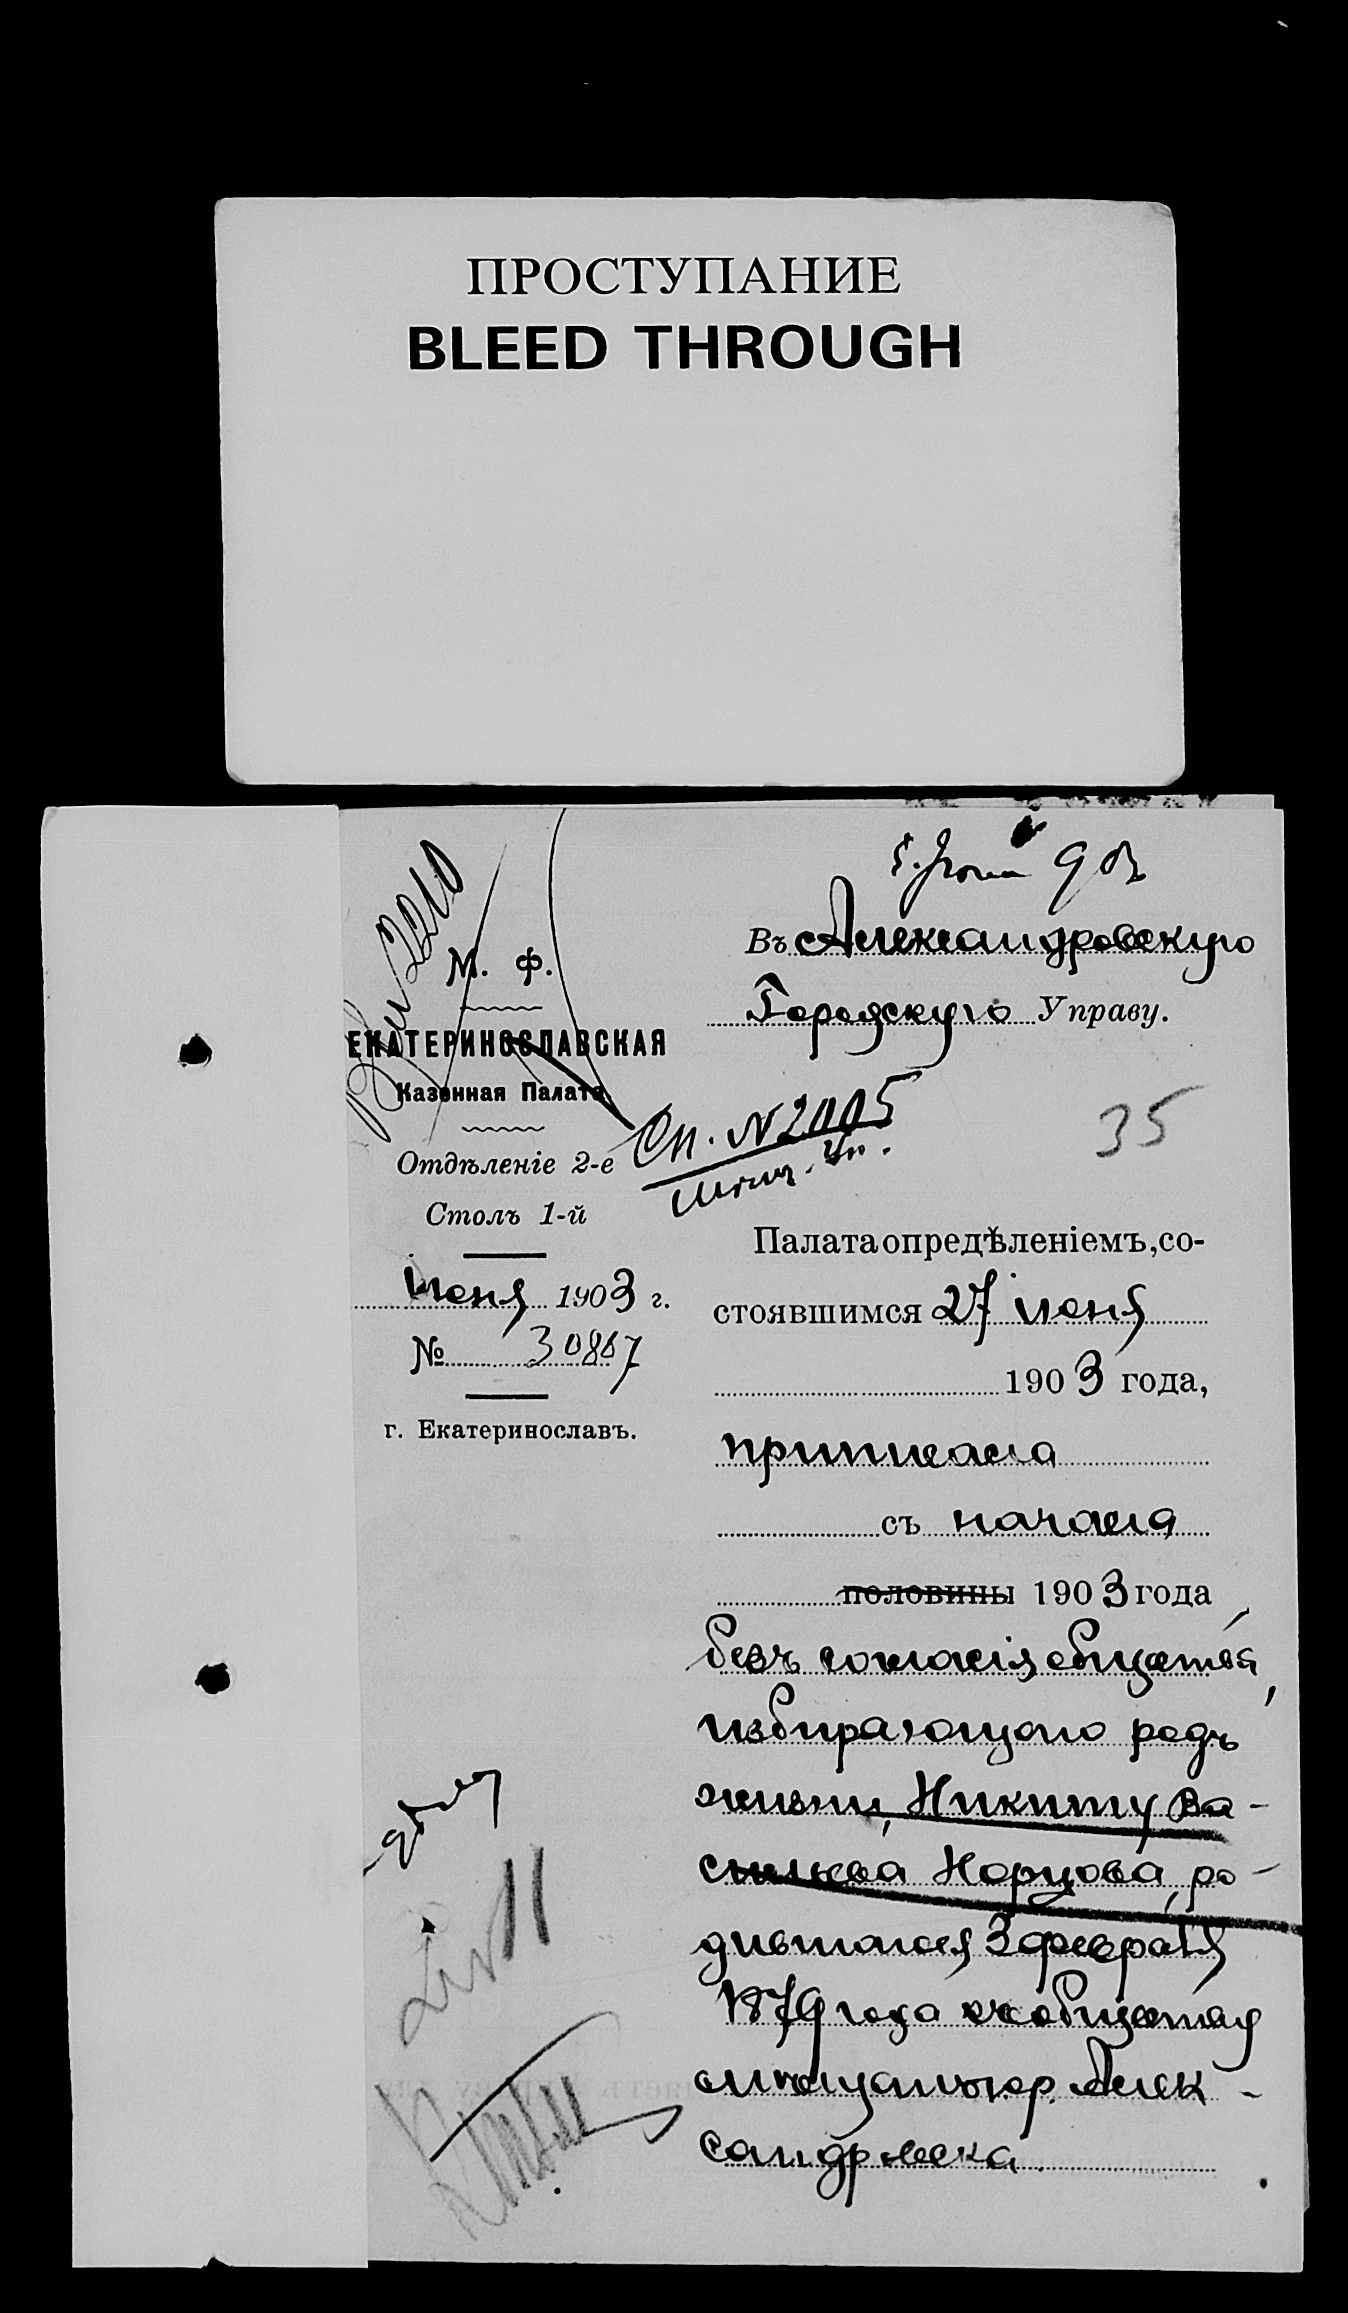 ПРОСТУПАНИЕ
BLEED THROUGH
М. Ф.
ЕКАТЕРИНОСЛАВСКАЯ
Казенная Палата.
Отдѣленіе 2-е
Столъ 1-й
июня 1903 г.
№ 30867
г. Екатеринославъ.
Въ Александровскую
Городскую Управу.
Сп. № 2005
35
Палата опредѣленіемъ, со-
стоявшимся 27 июня
1903 года,
приписала
съ начала
половины 1903 года
безъ согласія общества,
избирающаго родъ
жизни, Никиту Ва-
сильева Норцова, ро-
дившагося 3 февраля
1879 года къ обществу
мѣщанъ гор. Алек-
сандровска